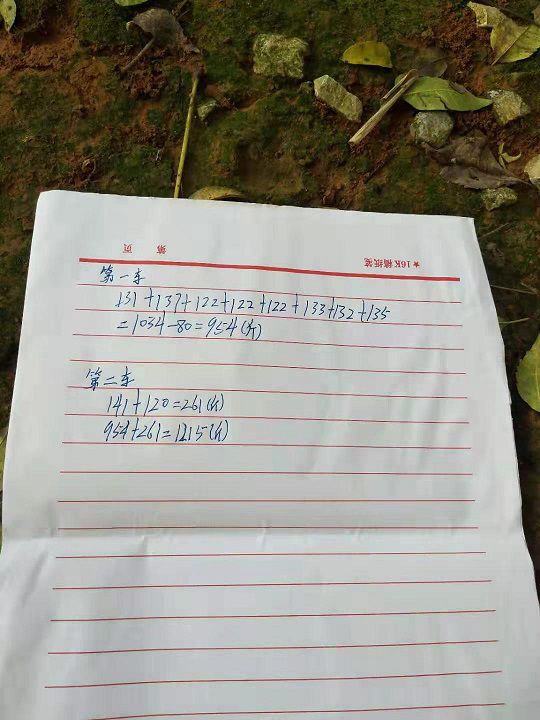 ★16K稿纸笔
第 页
第一车
131+137+122+122+122+133+132+135
=1034-80=954(斤)
第二车
141+120=261(斤)
954+261=1215(斤)